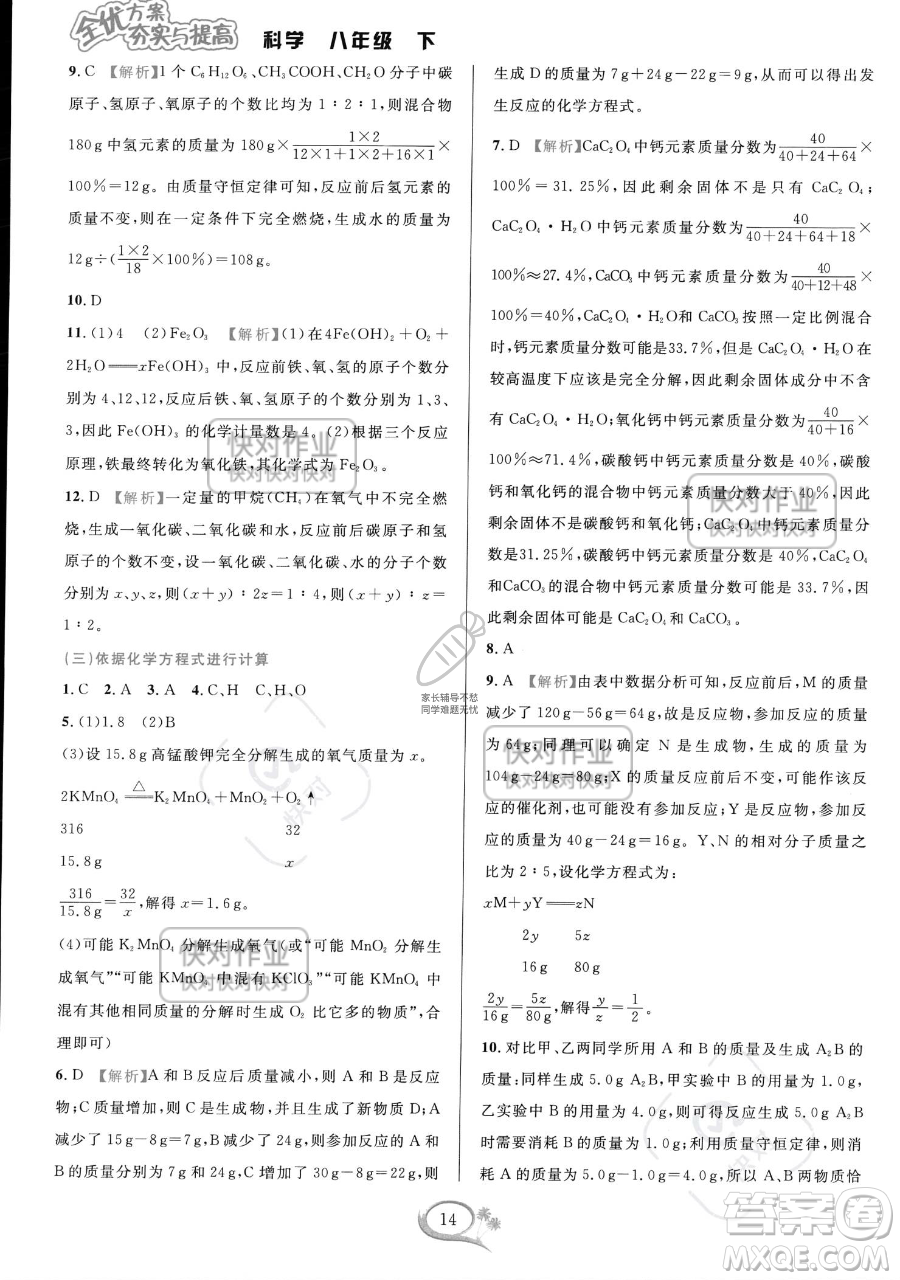 全优方案
夯实与提高
科学 八年级 下
9. C 【解析】1 个 C₆H₁₂O₆、CH₃COOH、CH₂O 分子中碳
原子、氢原子、氧原子的个数比均为 1∶2∶1,则混合物
180 g 中氢元素的质量为 180 g×(1×2)/(12×1+1×2+16×1)×
100%=12 g。由质量守恒定律可知,反应前后氢元素的
质量不变,则在一定条件下完全燃烧,生成水的质量为
12 g÷((1×2)/18×100%)=108 g。
10. D
11. (1)4 (2)Fe₂O₃ 【解析】(1)在 4Fe(OH)₂+O₂+
2H₂O══xFe(OH)₃ 中,反应前铁、氧、氢的原子个数分
别为 4、12、12,反应后铁、氧、氢的原子个数分别为 1、3、
3,因此 Fe(OH)₃ 的化学计量数是 4。(2)根据三个反应
原理,铁最终转化为氧化铁,其化学式为 Fe₂O₃。
12. D 【解析】一定量的甲烷(CH₄)在氧气中不完全燃
烧,生成一氧化碳、二氧化碳和水,反应前后碳原子和氢
原子的个数不变,设一氧化碳、二氧化碳、水的分子个数
分别为 x、y、z,则(x+y)∶2z=1∶4,所以(x+y)∶z=
1∶2。
(三)依据化学方程式进行计算
1. C 2. A 3. A 4. C、H C、H、O
5. (1)1.8 (2)B
(3)设 15.8 g 高锰酸钾完全分解生成的氧气质量为 x。
2KMnO₄ ≜ K₂MnO₄+MnO₂+O₂↑
316 32
15.8 g x
316/15.8 g=32/x,解得 x=1.6 g。
(4)可能 K₂MnO₄ 分解生成氧气(或“可能 MnO₂ 分解生
成氧气”“可能 KMnO₄ 中混有 KClO₃”“可能 KMnO₄ 中
混有其他相同质量的分解时生成 O₂ 比它多的物质”,合
理即可)
6. D 【解析】A 和 B 反应后质量减小,则 A 和 B 是反应
物;C 质量增加,可能是生成物,也可能是反应物 D;A
减少了 15 g-8 g=7 g,B 减少了 24 g,所以参加反应的 A 和
B 的质量分别为 7 g 和 24 g;C 增加了 30 g-8 g=22 g,则
生成 D 的质量为 7 g+24 g-22 g=9 g,从而可以得出发
生反应的化学方程式。
7. D 【解析】CaC₂O₄ 中钙元素质量分数为 40/(40+24+64)×
100%=31.25%,因此剩余固体不是只有 CaC₂O₄;
CaC₂O₄·H₂O 中钙元素质量分数为 40/(40+24+64+18)×
100%≈27.4%,CaCO₃ 中钙元素质量分数为 40/(40+12+48)×
100%=40%,CaC₂O₄·H₂O 和 CaCO₃ 按照一定比例混合
时,钙元素质量分数可能是33.7%,但是 CaC₂O₄·H₂O 在
较高温度下应该是完全分解,因此剩余固体成分中不含
有 CaC₂O₄·H₂O;氧化钙中钙元素质量分数为 40/(40+16)×
100%≈71.4%,碳酸钙中钙元素质量分数是 40%,碳酸
钙和氧化钙的混合物中钙元素质量分数大于 40%,因此
剩余固体不是碳酸钙和氧化钙;CaC₂O₄ 中钙元素质量分
数是31.25%,碳酸钙中钙元素质量分数是 40%,CaC₂O₄
和CaCO₃的混合物中钙元素质量分数可能是 33.7%,因
此剩余固体可能是 CaC₂O₄ 和 CaCO₃。
8. A
9. A 【解析】由表中数据分析可知,反应前后,M 的质量
减少了 120 g-56 g=64 g,故是反应物,参加反应的质量
为 64 g;同理可以确定 N 是生成物,生成的质量为
104 g-24 g=80 g;X 的质量不变,可能作该反
应的催化剂,也可能没有参加反应;Y 是反应物,参加反
应的质量为 40 g-24 g=16 g。Y、N 的相对分子质量之
比为 2∶5,设化学方程式为:
xM+yY══zN
2y 5z
16 g 80 g
2y/16 g=5z/80 g,解得 y/z=1/2。
10. 对比甲、乙两同学所用 A 和 B 的质量及生成 A₂B 的
质量:同样生成 5.0 g A₂B,甲实验中 B 的质量为 1.0 g,
乙实验中 B 的质量为 2.0 g,可见生成 5.0 g A₂B 时只
需要消耗 B 的质量为 1.0 g;利用质量守恒定律,则消
耗 A 的质量为 5.0 g-1.0 g=4.0 g,所以 A、B 两物质恰
家长辅导不愁
同学难题无忧
快对作业
快对快对快对
快对作业
快对快对快对
快对作业
快对快对快对
快对作业
快对快对快对
快对
快对
14
答案卷
MXQE.COM